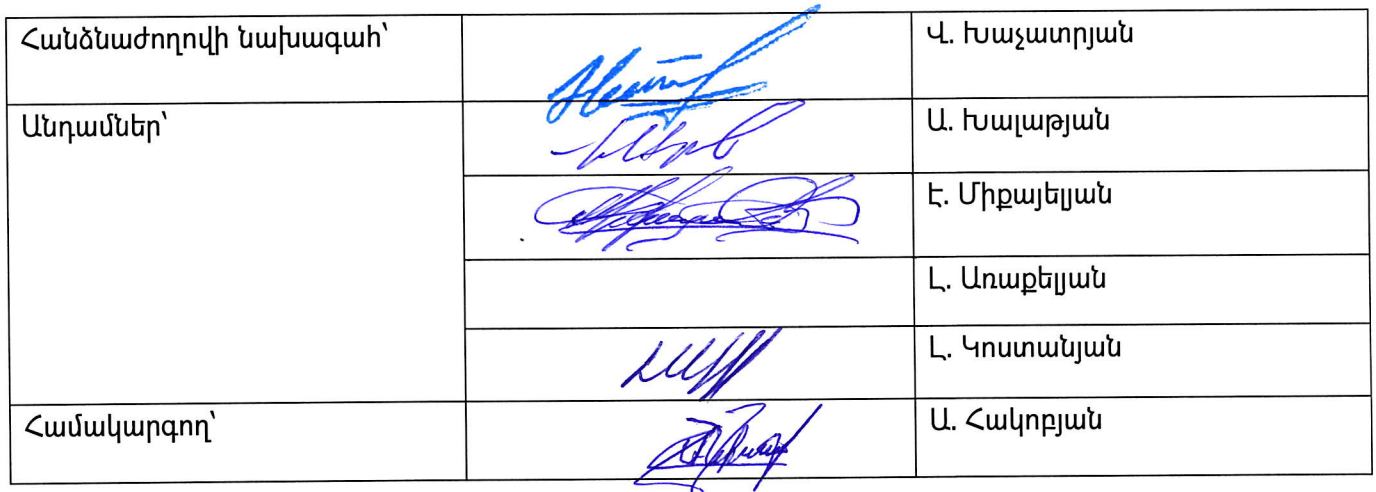 Հանձնաժողովի նախագահ՝ Վ. Խաչատրյան
Անդամներ՝ Ա. Խալաթյան
Է. Միքայելյան
Լ. Առաքելյան
Լ. Կոստանյան
Համակարգող՝ Ա. Հակոբյան